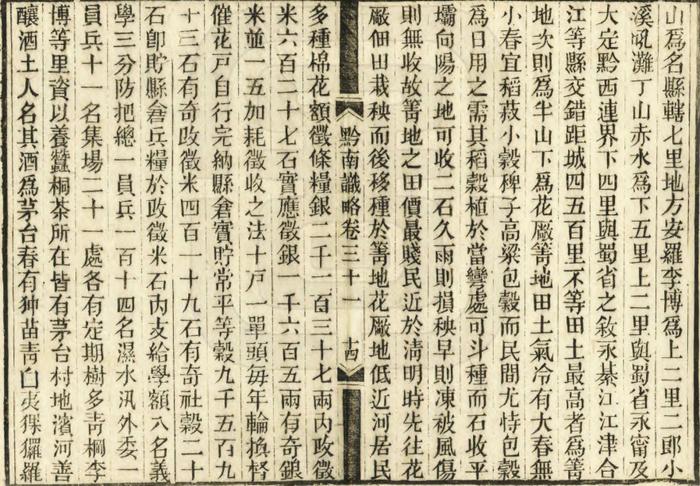 山爲名縣轄七里地方安羅李博爲上二里二郎小
溪吼灘丁山赤水爲下五里上二里與蜀省永甯及
大定黔西連界下四里與蜀省之敘永綦江江津合
江等縣交錯距城四五百里不等田土最高者爲箐
地次則爲半山下爲花厰箐地田土氣冷有大春無
小春宜稻菽小穀稗子高粱包穀而民間尤恃包穀
爲日用之需其稻穀植於當彎處可斗種而石收平
壩向陽之地可收二石久雨則損秧早則凍被風傷
則無收故箐地之田價最賤民近於淸明時先往花
厰佃田栽秧而後移種於箐地花厰地低近河居民
多種棉花額徵條糧銀二千一百三十七兩內政徵
黔南識略卷三十一 十四
米六百二十七石實應徵銀一千六百五兩有奇銀
米並一五加耗徵收之法十戶一單頭每年輪換督
催花戶自行完納縣倉實貯常平等穀九千五百九
十三石有奇政徵米四百一十九石有奇社穀二十
石卽貯縣倉兵糧於政徵米石內支給學額八名義
學三分防把總一員兵一百十四名濕水汛外委一
員兵十一名集場二十一處各有定期樹多青棡李
博等里資以養蠶桐茶所在皆有茅台村地濱河善
釀酒土人名其酒爲茅台春有狆苗靑白夷猓玀羅